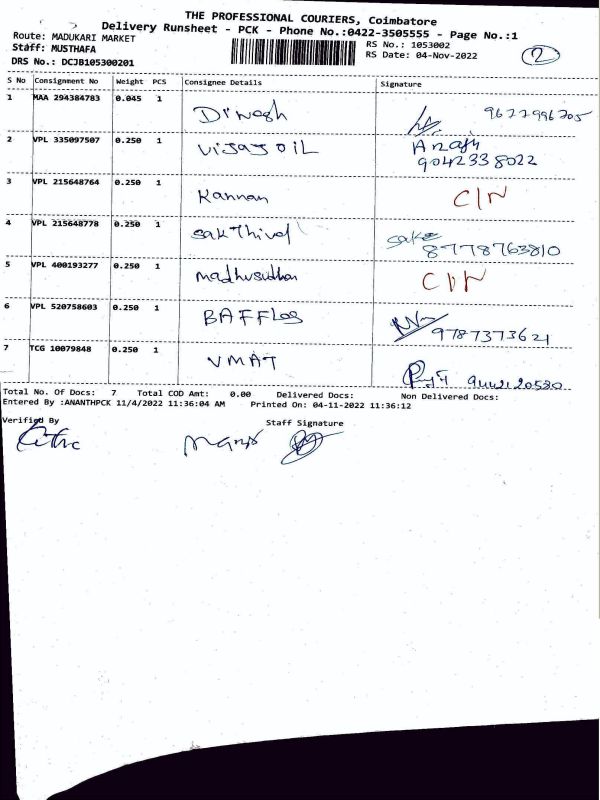 THE PROFESSIONAL COURIERS, Coimbatore
Delivery Runsheet - PCK - Phone No.:0422-3505555 - Page No.:1
Route: MADUKARI MARKET
RS No.: 1053002
Staff: MUSTHAFA
RS Date: 04-Nov-2022
2
DRS No.: DCJB105300201
S No Consignment No Weight PCS Consignee Details Signature
1 MAA 294384783 0.045 1 Dinesh
2 VPL 335097507 0.250 1 VIJAJ OIL 9042338022
3 VPL 215648764 0.250 1 Kannan C/N
4 VPL 215648778 0.250 1 sakthivel 8778763810
5 VPL 400193277 0.250 1 madhusudhan
6 VPL 520758603 0.250 1 BAFFLES 9787373621
7 TCG 10079848 0.250 1 VMAT
Total No. Of Docs: 7 Total COD Amt: 0.00 Delivered Docs: Non Delivered Docs:
Entered By :ANANTHPCK 11/4/2022 11:36:04 AM Printed On: 04-11-2022 11:36:12
Verified By
Staff Signature